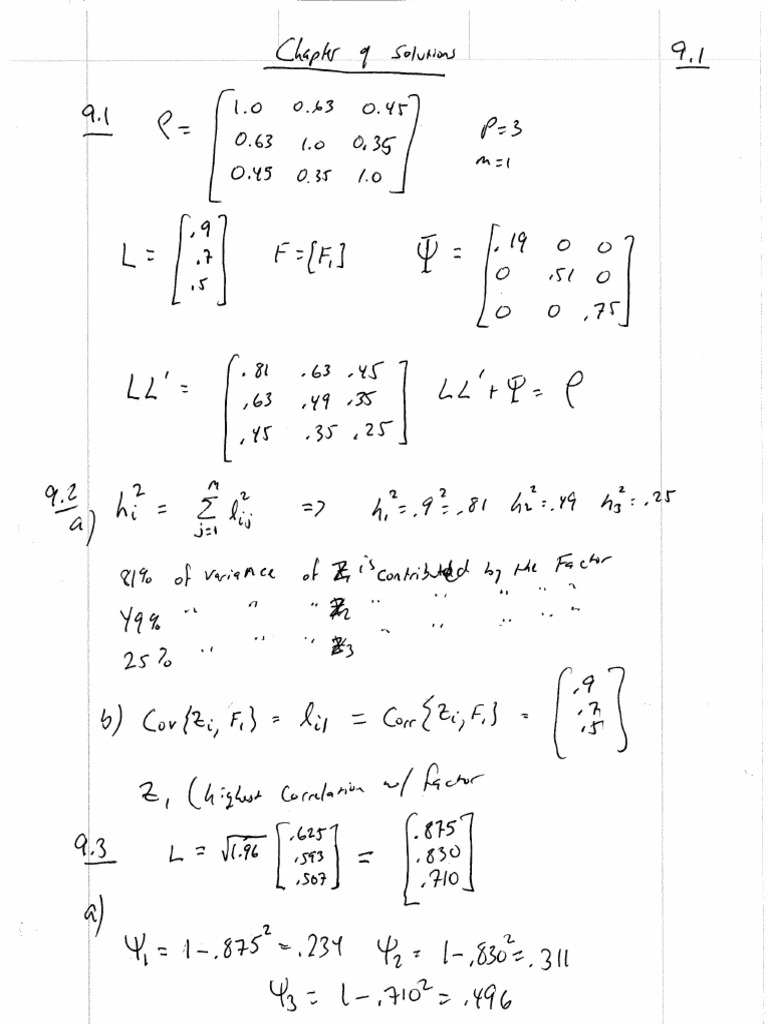 Chapter 9 Solutions
9.1
9.1 ρ = [1.0 0.63 0.45
0.63 1.0 0.35
0.45 0.35 1.0]
P=3
m=1
L = [.9
.7
.5]
F = [F₁]
Ψ = [.19 0 0
0 .51 0
0 0 .75]
LL' = [.81 .63 .45
.63 .49 .35
.45 .35 .25]
LL' + Ψ = ρ
9.2
a) hᵢ² = Σⱼ₌₁ᵐ lᵢⱼ² => h₁² = .9² = .81 h₂² = .49 h₃² = .25
81% of variance of Z₁ is contributed by the Factor
49% " " " Z₂ " " " " "
25% " " " Z₃ " " " " "
b) Cov{Zᵢ, F₁} = lᵢ₁ = Corr{Zᵢ, F₁} = [.9
.7
.5]
Z₁ (highest correlation w/ factor
9.3 L = √1.96 [.625
.593
.507] = [.875
.830
.710]
a)
Ψ₁ = 1-.875² = .234 Ψ₂ = 1-.830² = .311
Ψ₃ = 1-.710² = .496